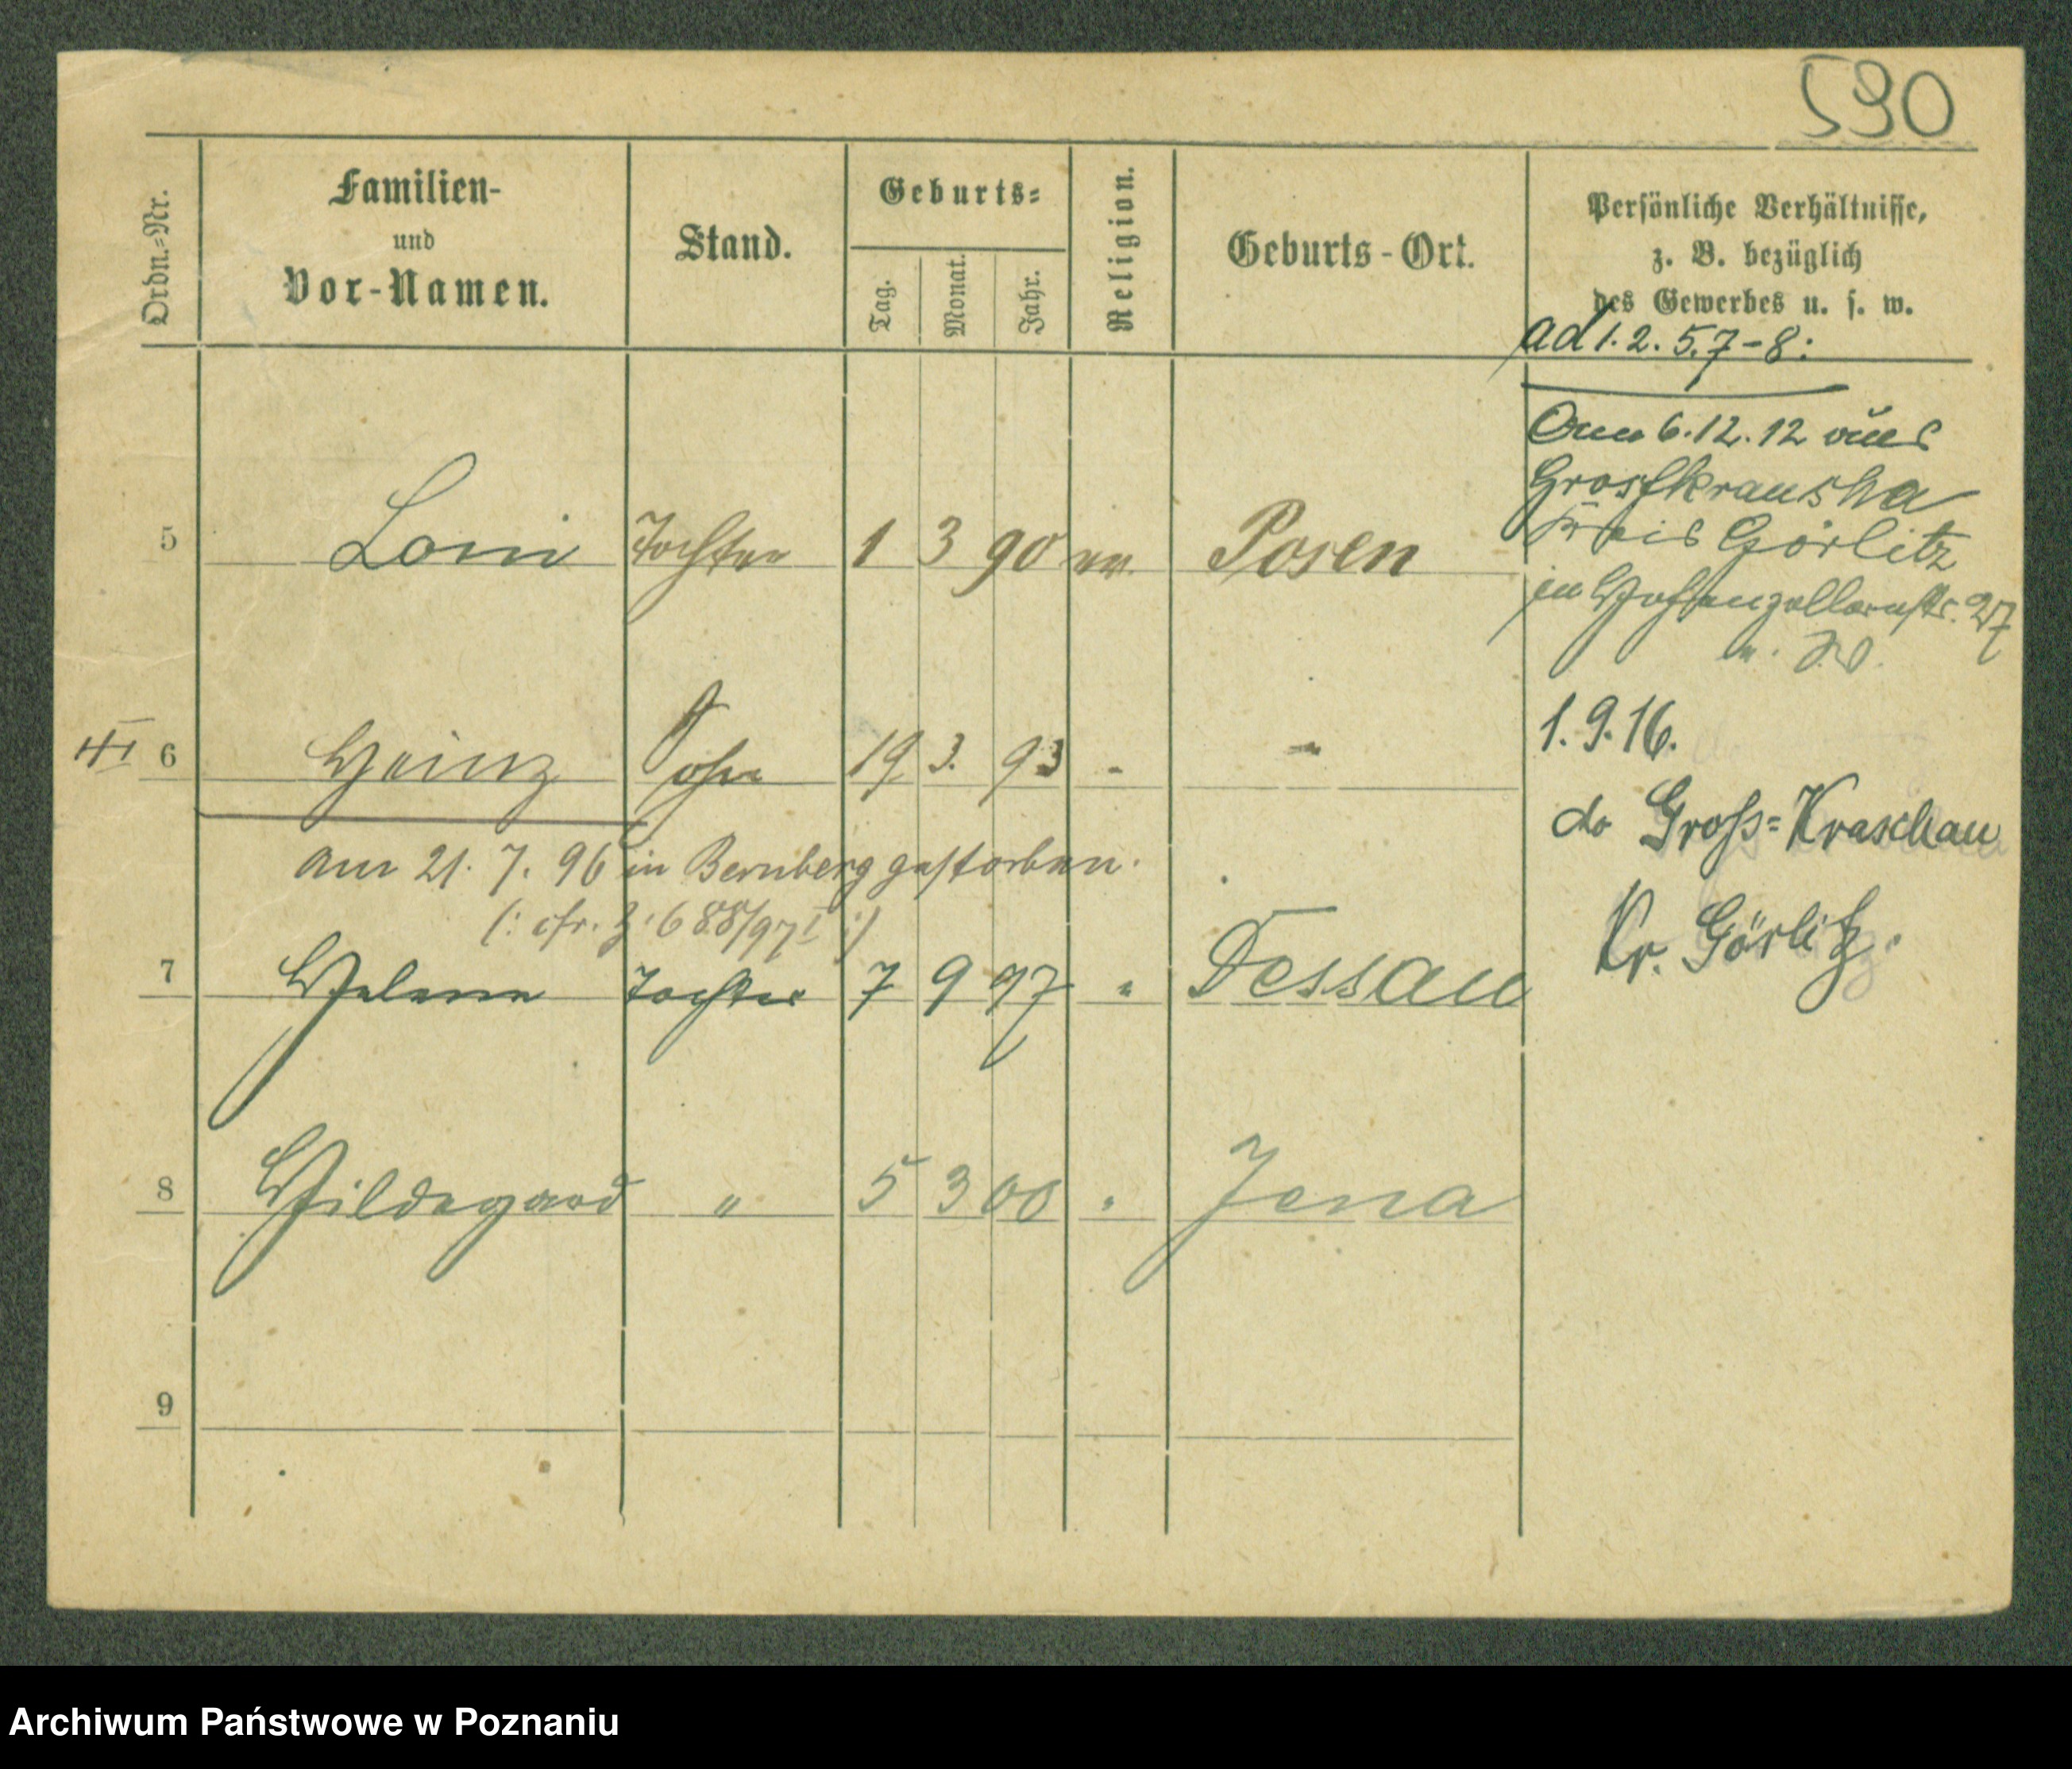 590
Ordn.=Nr.
Familien-
und
Vor-Namen.
Stand.
Geburts=
Tag.
Monat.
Jahr.
Religion.
Geburts-Ort.
Persönliche Verhältnisse,
z. B. bezüglich
des Gewerbes u. s. w.
ad 1. 2. 5. 7-8:
Am 6.12.12 aus
Grosskrausha
Kreis Görlitz
in Hohenzollernstr. 27
5 Loni Tochter 1 3 90 ev. Posen
1.9.16.
6 Heinz Sohn 19 3. 93 - -
do Gross=Kraschau
am 21. 7. 96 in Bernberg gestorben.
(: cfr. J: 688/97 I :)
Kr. Görlitz.
7 Helene Tochter 7 9 97 " Dessau
8 Hildegard " 5 3 00 " Jena
9
Archiwum Państwowe w Poznaniu